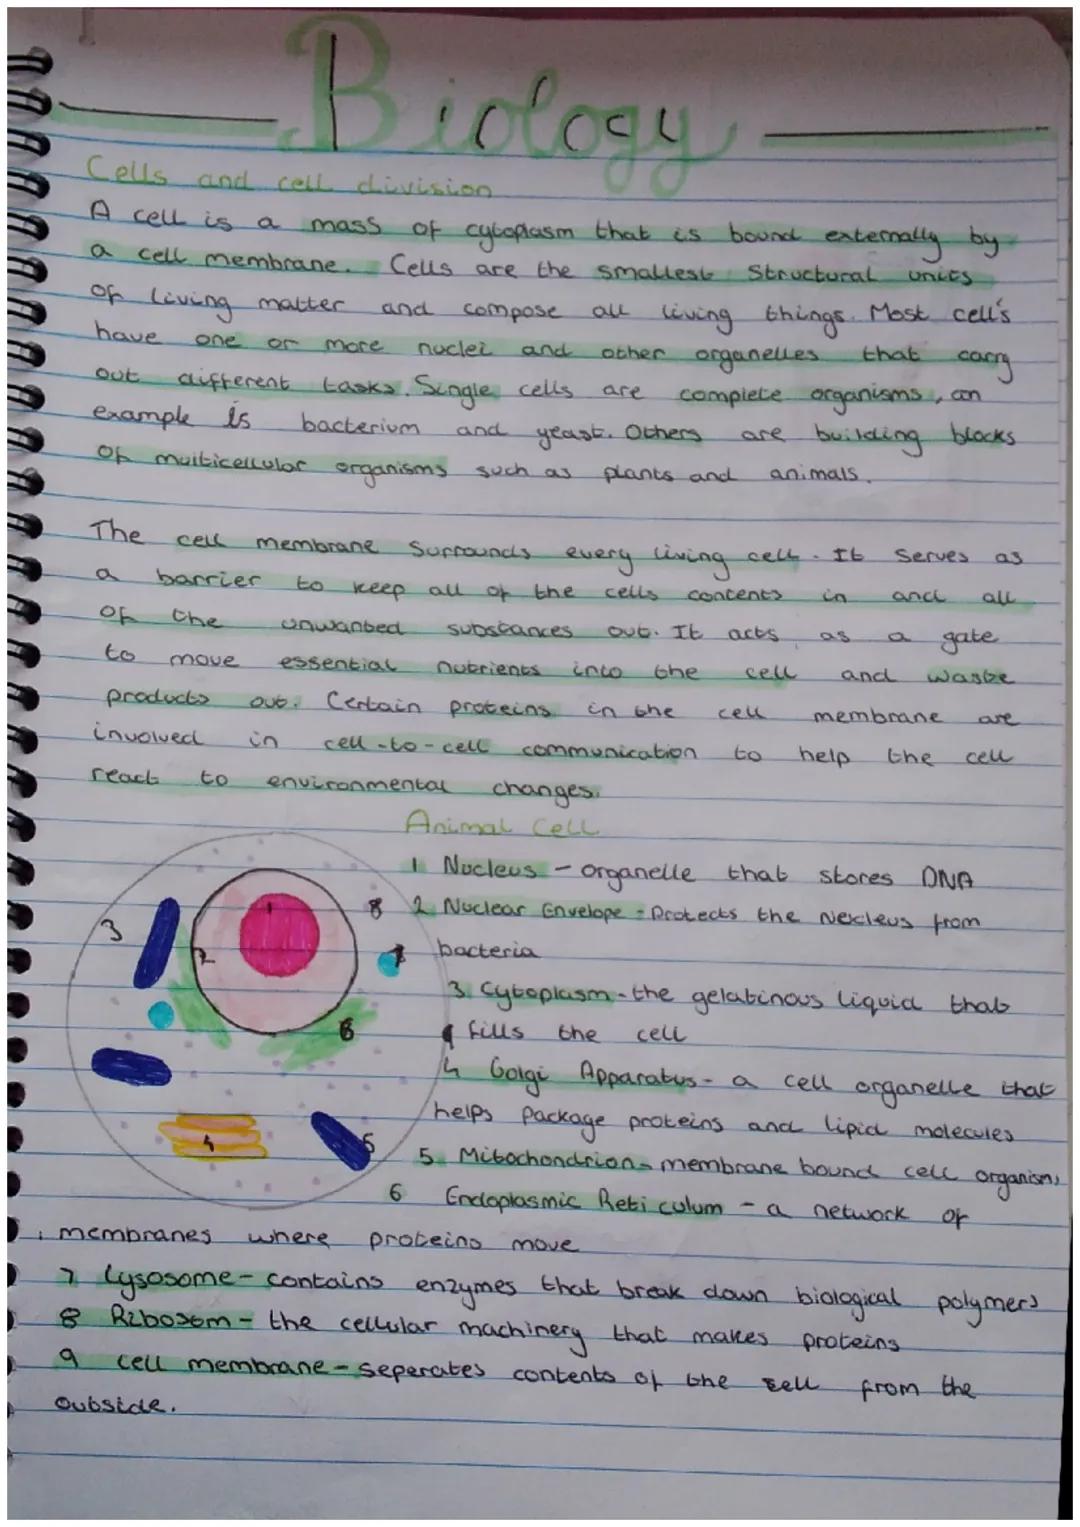 Biology
Cells and cell division
A cell is a mass of cytoplasm that is bound externally by
a cell membrane. Cells are the smallest structural units
of living matter and compose all living things. Most cell's
have one or more nuclei and other organelles that carry
out different tasks. Single cells are complete organisms, an
example is bacterium and yeast. Others are building blocks
of multicellular organisms such as plants and animals.
The cell membrane surrounds every living cell. It serves as
a barrier to keep all of the cells contents in and all
of the unwanted substances out. It acts as a gate
to move essential nutrients into the cell and waste
products out. Certain proteins in the cell membrane are
involved in cell-to-cell communication to help the cell
react to environmental changes.
Animal Cell
1 Nucleus - organelle that stores DNA
2 Nuclear Envelope - Protects the Nucleus from
bacteria
3. Cytoplasm - the gelatinous liquid that
fills the cell
4 Golgi Apparatus - a cell organelle that
helps package proteins and lipid molecules
5. Mitochondrion - membrane bound cell organism,
6 Endoplasmic Reticulum - a network of
membranes where proteins move
7 Lysosome - contains enzymes that break down biological polymers
8 Ribosom - the cellular machinery that makes proteins
9 cell membrane - seperates contents of the cell from the
outside.
1
2
3
8
6
4
5